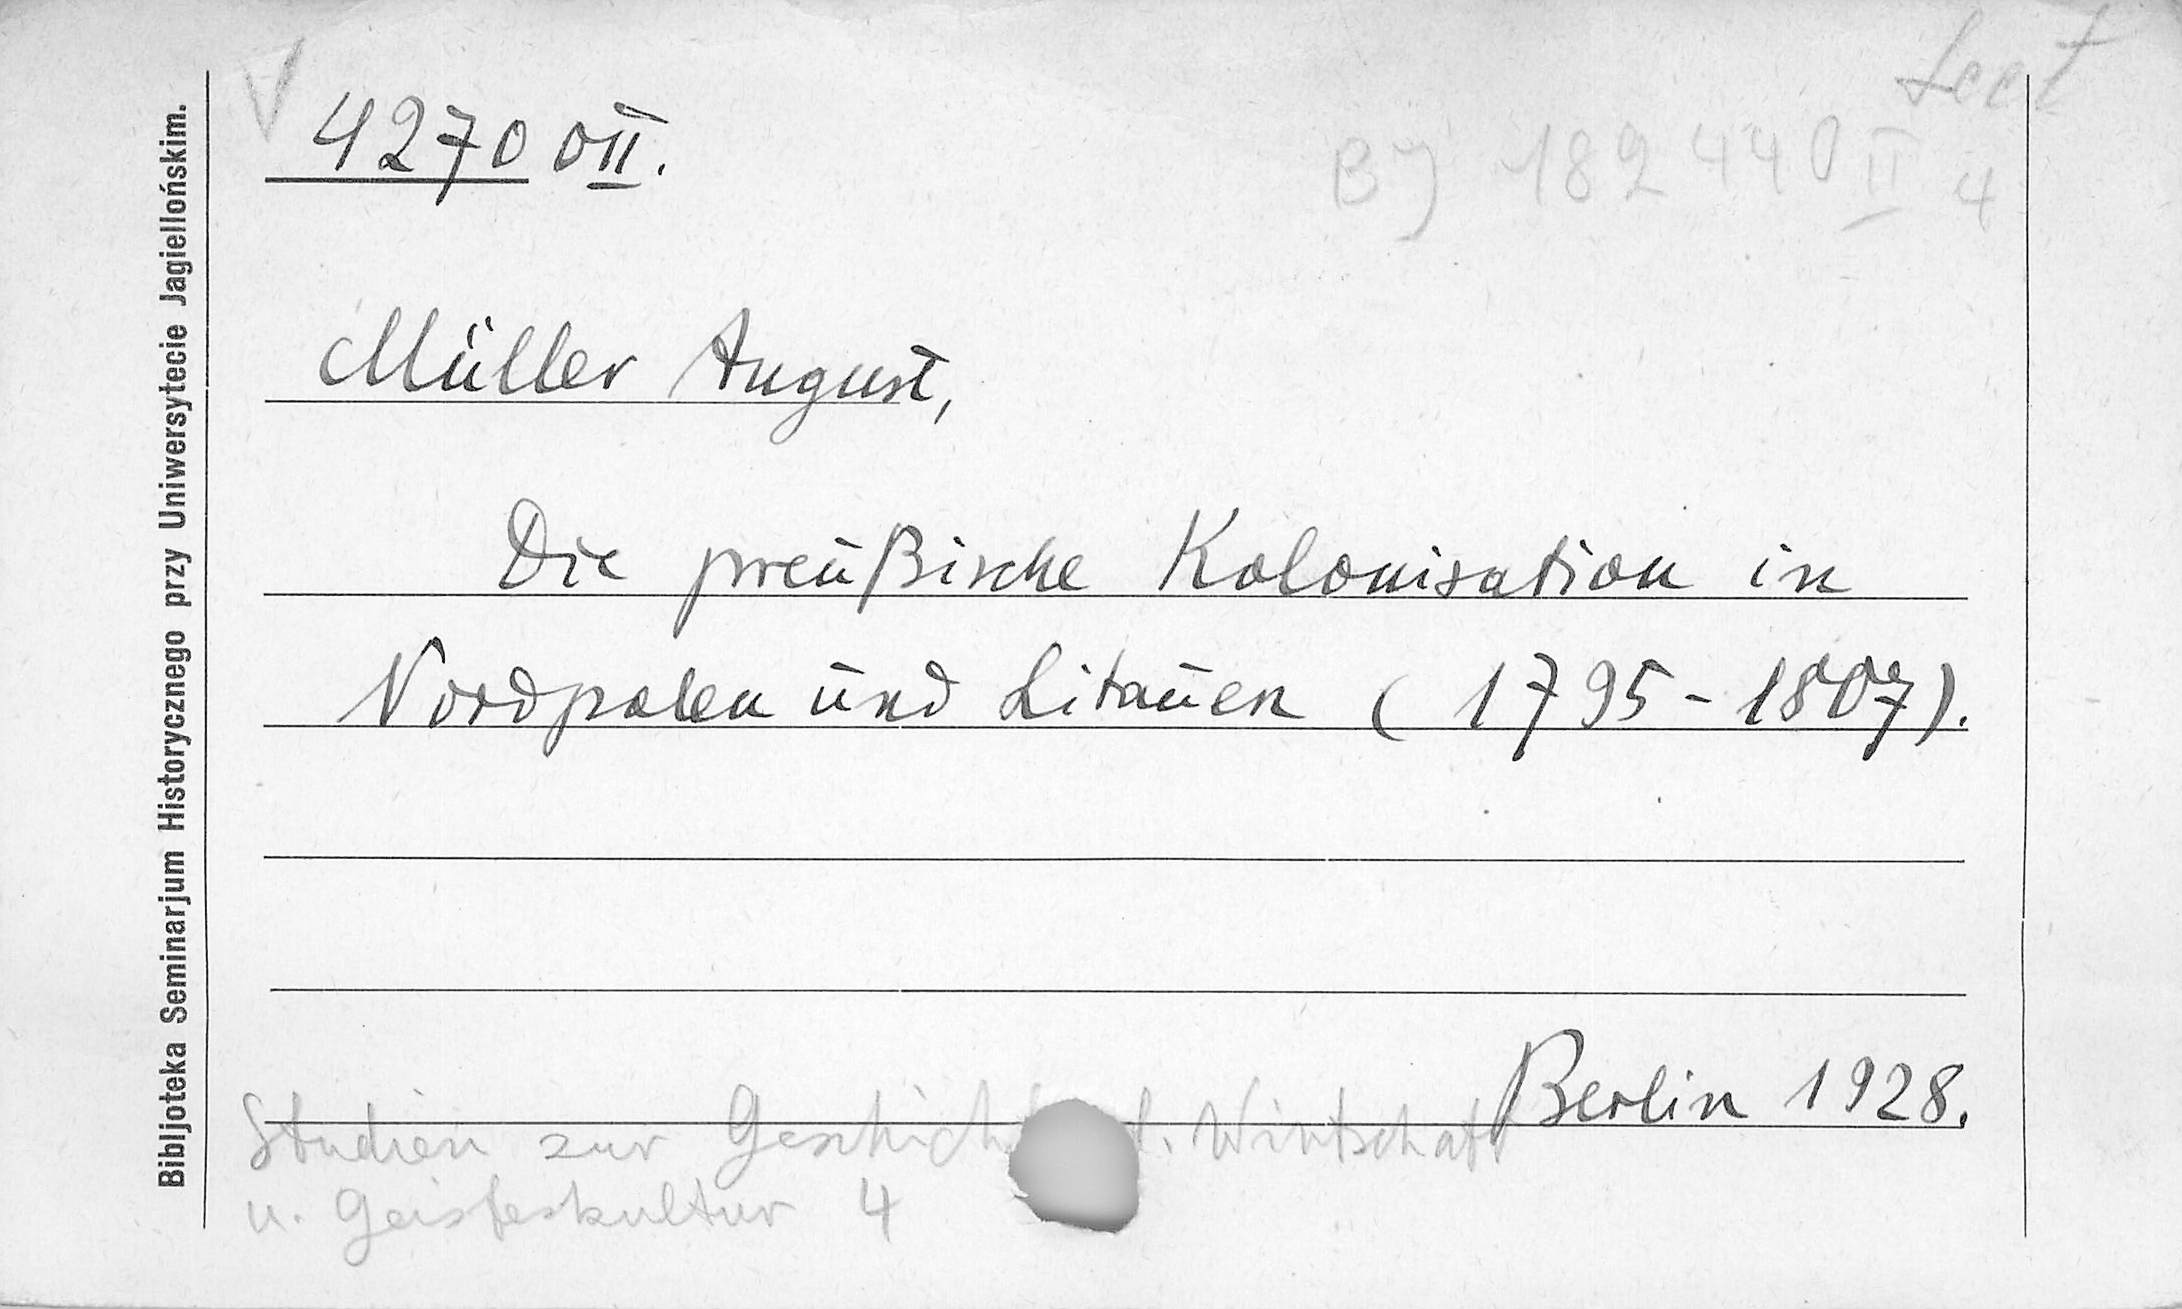 Sect
V 4270 OII.
BJ 182440 II 4
Müller August,
Die preußische Kolonisation in
Nordpolen und Litauen (1795-1807).
Berlin 1928.
Studien zur Geschich d. Wirtschaft
u. Geisteskultur 4
Bibljoteka Seminarjum Historycznego przy Uniwersytecie Jagiellońskim.